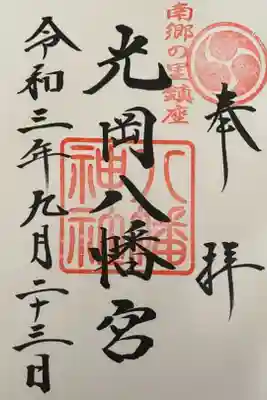 南郷の里鎮座
奉拝
光岡八幡宮
八幡
神社
令和三年九月二十三日